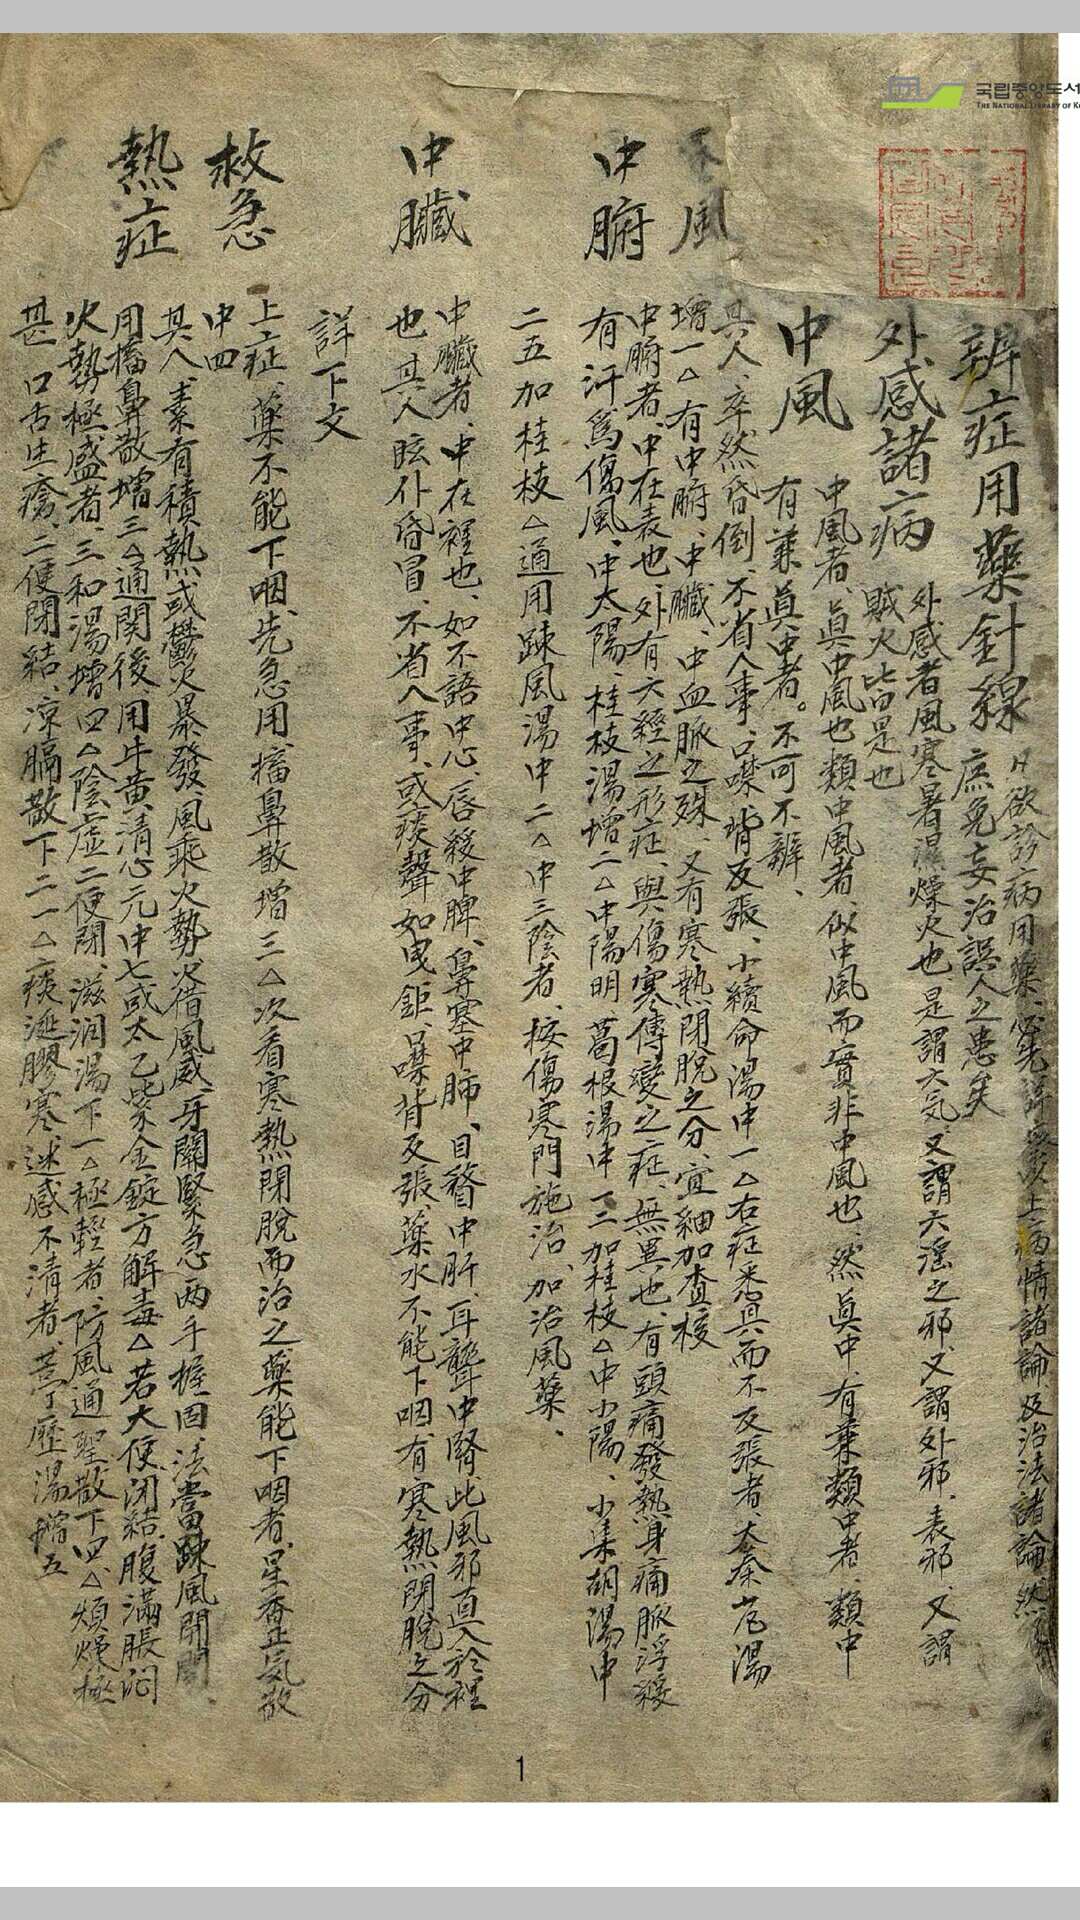 국립중앙도서
THE NATIONAL LIBRARY OF K
辨症用藥針線 凡欲診病用藥、必先詳察以上病情諸論、及治法諸論、然
庶免妄治誤人之患矣
外感諸病 外感者風寒暑濕燥火也是謂六気、又謂六淫之邪、又謂外邪、表邪、又謂
賊火皆是也
中風 中風者、眞中風也類中風者、似中風而實非中風也、然眞中、有兼類中者、類中
有兼眞中者。不可不辨、
風
具人、卒然昏倒、不省人事、口噤、背反張、小續命湯中一△右症悉具而不反張者、大秦艽湯
增一△有中腑、中臟、中血脈之殊、又有寒熱閉脫之分、宜細加查核
中腑
中腑者、中在表也、外有六經之形症、與傷寒傳變之症、無異也、有頭痛發熱身痛脈浮緩
有汗爲傷風、中太陽、桂枝湯增二△中陽明葛根湯中一二加桂枝△中小陽、小柴胡湯中
二五加桂枝△通用疎風湯中二△中三陰者、按傷寒門施治、加治風藥、
中臟
中臟者、中在裡也、如不語中心、唇緩中脾、鼻塞中肺、目瞀中肝、耳聾中腎、此風邪直入於裡
也、其人眩仆昏冒、不省人事、或痰聲如曳鉅、噤背反張、藥水不能下咽、有寒熱閉脫之分
詳下文
救急
上症、藥不能下咽、先急用搐鼻散增三△次看寒熱閉脫而治之藥能下咽者、星香正気散
中四
熱症
其人、素有積熱、或鬱火暴發、風乘火勢、火借風威、牙關緊急、兩手握固、法當疎風開關、
用搐鼻散增三△通関後、用牛黃淸心元中七或太乙紫金錠方解毒△若大便閉結、腹滿脹悶
火勢極盛者、三和湯增四△陰虛二便閉、滋潤湯下一△極輕者、防風通聖散下四△煩燥極
甚、口舌生瘡、二便閉結、凉膈散下二一△痰涎膠寒、迷感不淸者、葶藶湯增五
1